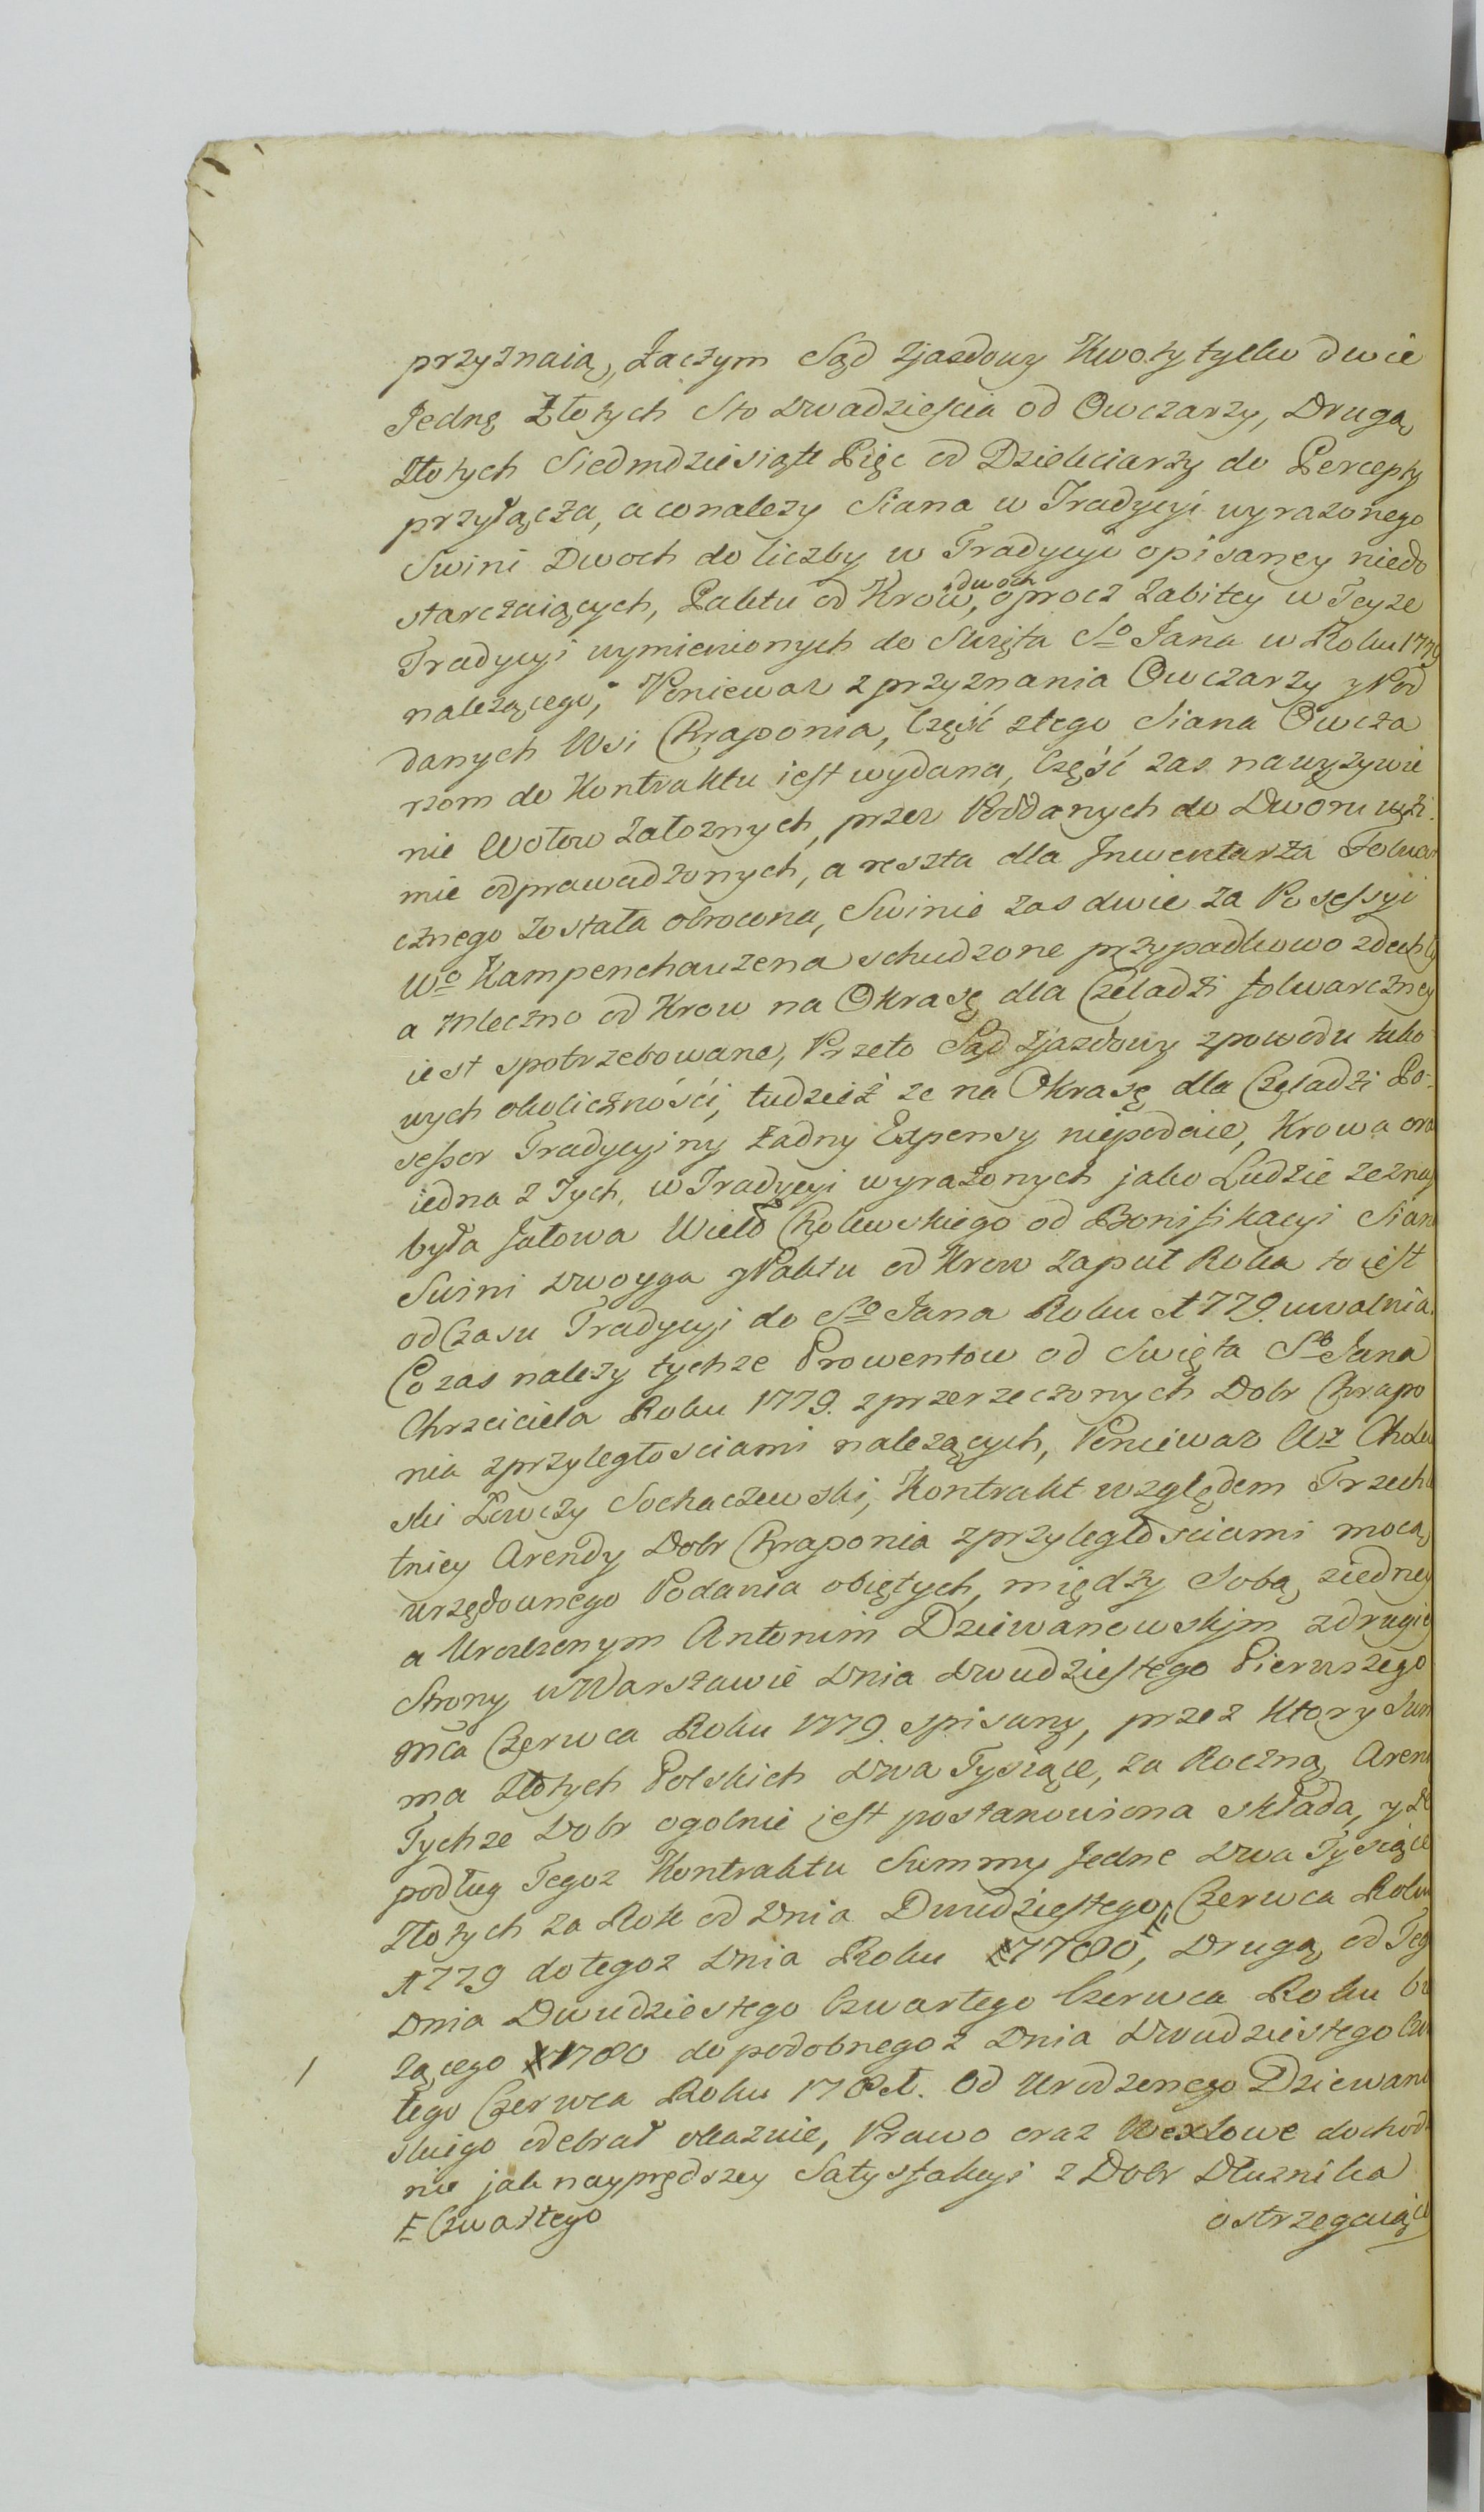 przyznaią, Zaczym Sąd Zjazdowy Kwoty tylko dwie
Jednę Złotych Sto Dwadzieścia od Owczarzy, Drugą
Złotych Siedmdziesiąt Pięć od Dzieliciarzy do Percepty
przyłącza, a co należy Siana w Tradycyi wyrażonego
Swini Dwoch do liczby w Tradycyi opisaney niedo
starczaiących, Paktu od Krow, dwoch oprocz Zabitey w Teyze
Tradycyi wymienionych do Swięta So Jana w Roku 1779
należącego, Ponieważ z przyznania Owczarzy y Pod
danych Wsi Chraponia, Część złego Siana Owcza
rzom do Kontraktu iest wydana, Część zas na wyżywie
nie Wołow Załoznych, przez Poddanych do Dworu w zi
mie odprawadzonych, a reszta dla Jnwentarza Folwar
cznego została obrocona, Swinie zas dwie za Possessyi
Wo Kampenchauzena schudzone przypadkowo zdechły
a Mleczno od Krow na Okrasę dla Czeladzi folwarczney
iest spotrzebowane, Przeto Sąd Zjazdowy z powodu tako
wych okoliczności, tudzież ze na Okrasę dla Czeladzi Po-
sessor Tradycyiny Zadny Expensy niepodaie, Krowa oraz
iedna z Tych, w Tradycyi wyrażonych jako Ludzie zeznaią
była Jałowa Wielo Cholewskiego od Bonifikacyi Siana
Swini Dwoyga y Paktu od Krow Zapuł Roku to iest
od Czasu Tradycyi do So Jana Roku 1779. uwalnia.
Co zas należy tychze Prowentow od Swięta So Jana
Chrzciciela Roku 1779. z przerzeczonych Dobr Chrapo
nia z przyległościami należących, Ponieważ Wz Cholew
ski Łowczy Sochaczewski, Kontrakt względem Trzech
tniey Arendy Dobr Chraponia z przyległościami mocą
urzędownego Podania obiętych, między Sobą z iedney
a Urodzonym Antonim Dziewanowskim z drugiey
Strony w Warszawie Dnia Dwudziestego Pierwszego
Mca Czerwca Roku 1779. spisany, przez Ktory Sum
ma Złotych Polskich Dwa Tysiące, za Roczną Arend
Tychze Dobr ogolnie jest postanowiona składa, y że
podług Tegoz Kontraktu Summy Jedne Dwa Tysiące
Złotych za Rok od Dnia Dwudziestego Ł Czerwca Roku
1779 do tegoz Dnia Roku 1780, Drugą od Teg
Dnia Dwudziestego Czwartego Czerwca Roku bi
żącego 1780 do podobnegoz Dnia Dwudziestego Czw
tego Czerwca Roku 1781. od Urodzonego Dziewano
skiego odebrał okaznie, Prawo oraz Wexlowe dochodze
nie jak nayprędszey Satysfakcyi z Dobr Dłuznika
Ł Czwartego
ostrzegaiąc